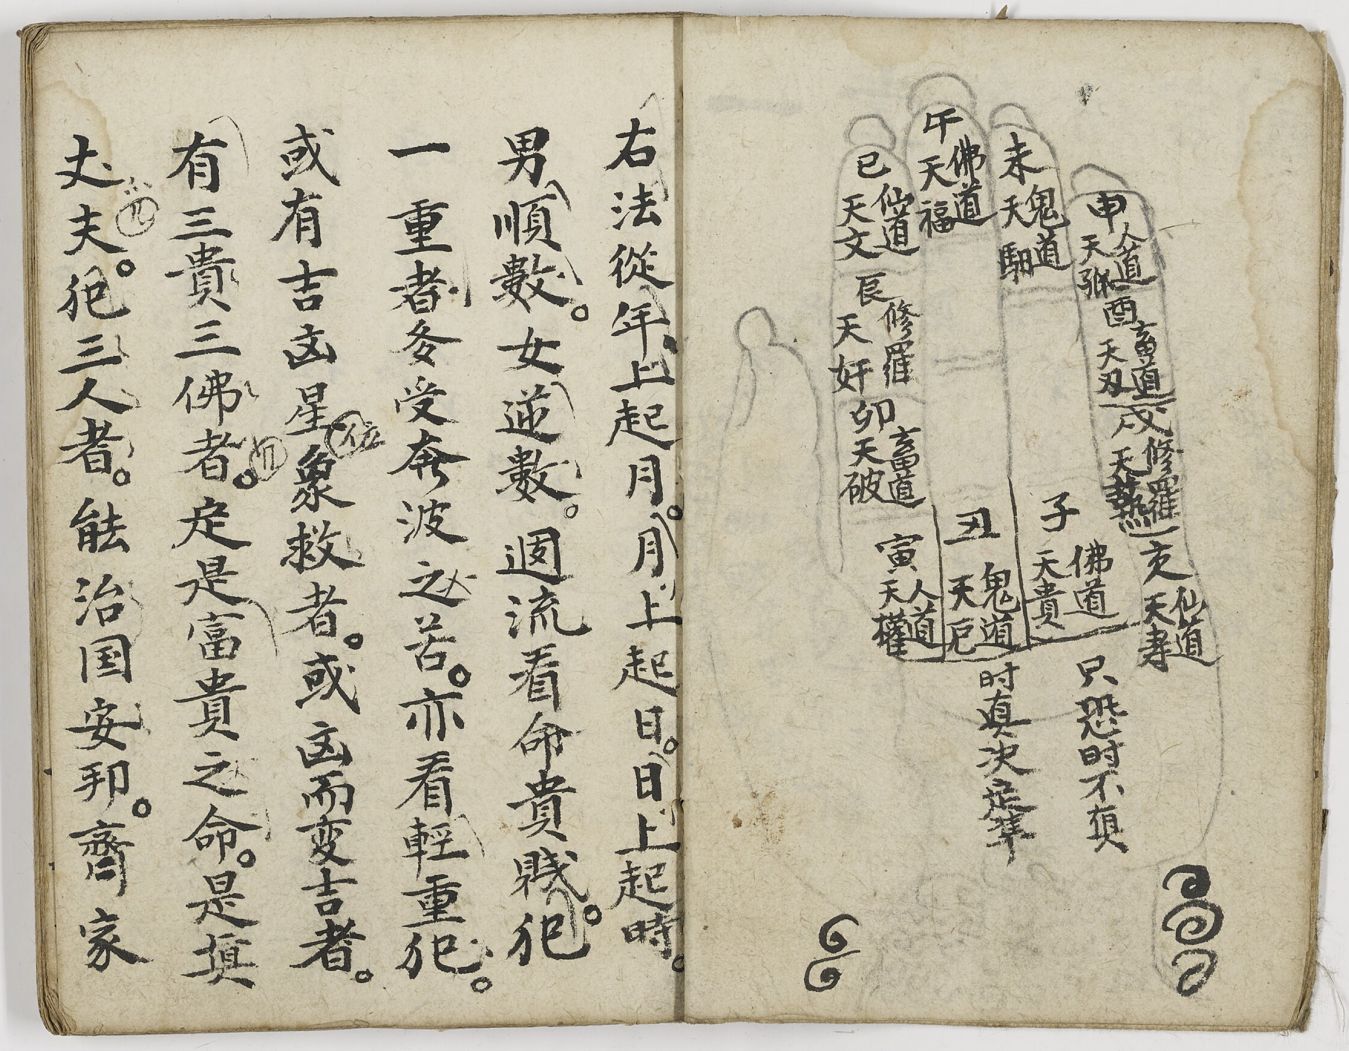 子 佛道 天貴
丑 鬼道 天厄
寅 人道 天權
卯 畜道 天破
辰 修羅 天奸
巳 仙道 天文
午 佛道 天福
未 鬼道 天馹
申 人道 天孤
酉 畜道 天刃
戌 修羅 天藝
亥 仙道 天寿
只恐时不真
时真决定準
右法從年上起月。月上起日。日上起時。
男順數。女逆數。週流看命貴賎。犯
一重者各受奔波之苦。亦看輕重犯。
或有吉凶星象救者。或凶而变吉者。
有三貴三佛者。定是富貴之命。是真
丈夫。犯三人者。能治国安邦。齊家